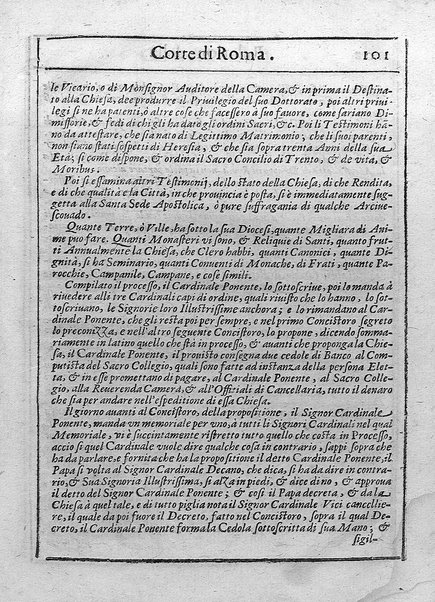 Corte di Roma. 101
le Vicario, o di Monsignor Auditore della Camera, & in prima il Destina-
to alla Chiesa, dee produrre il Privilegio del suo Dottorato, poi altri privi-
legi se ne ha patenti, ò altre cose che facessero a suo favore, come sariano Di-
missorie, & fedi di chi gli ha dato gli ordini Sacri, &c. Poi li Testimoni hā-
no da attestare, che sia nato di Legittimo Matrimonio; che li suoi parenti,
non siano stati sospetti di Heresia, & che sia sopra trenta Anni della sua
Età; si come dispone, & ordina il Sacro Concilio di Trento, & de vita, &
Moribus.
Poi si essamina altri Testimonij, dello stato della Chiesa, di che Rendita,
e di che qualità e la Città, in che provincia è posta, si è immediatamente sug-
getta alla Santa Sede Apostolica, ò pure suffragania di qualche Arciue-
scouado.
Quante Terre, o Ville, ha sotto la sua Diocesi, quante Migliara di Ani-
me puo fare. Quanti Monasteri vi sono, & Reliquie di Santi, quanto frut-
ti Annualmente la Chiesa, che Clero habbi, quanti Canonici, quante Di-
gnità, si ha Seminario, quanti Conuenti di Monache, di Frati, quante Pa-
rocchie, Campanile, Campane, e cose simili.
Compilato il processo, il Cardinale Ponente, lo sottoscriue, poi lo manda à
riuedere alli tre Cardinali capi di ordine, quali riuisto che lo hanno, lo sot-
toscriuano, le Signorie loro Illustrissime anchora; e lo rimandano al Car-
dinale Ponente, che gli resta poi per sempre, e nel primo Concistoro segreto
lo preconizza, e nell'altro seguente Concistoro, lo propone, dicendo somma-
riamente in latino quello che stà in processo, & auanti che proponga la Chie-
sa, il Cardinale Ponente, il prouisto consegna due cedole di Banco al Com-
putista del Sacro Collegio, quali sono fatte ad instanza della persona Elet-
ta, & in esse promettano di pagare, al Cardinale Ponente, al Sacro Colle-
gio, alla Reuerenda Camera, & all'Offitiali di Cancellaria, tutto il denaro
che sia per andare nell'espeditione di essa Chiesa.
Il giorno auanti al Concistoro, della propositione, il Signor Cardinale
Ponente, manda vn memoriale per vno, à tutti li Signori Cardinali nel qual
Memoriale, vi è succintamente ristretto tutto quello che costa in Processo,
acciò si quel Cardinale vuole dire qualche cosa in contrario, sappi sopra che
ha da parlare, e fornito che ha la propositione il detto Cardinale Ponente, il
Papa si volta al Signor Cardinale Decano, che dica, si ha da dire in contra-
rio, & Sua Signoria Illustrissima, si alza in piedi, & dice di no, & approua
il detto del Signor Cardinale Ponente; & cosi il Papa decreta, & da la
Chiesa à quel tale, e di tutto piglia nota il Signor Cardinale Vici cancellie-
re, il quale da poi fuore il Decreto, fatto nel Concistoro, sopra il qual De-
creto, il Cardinale Ponente forma la Cedola sottoscritta di sua Mano; &
sigil-